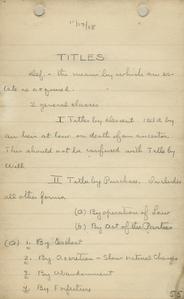 11/17/08
TITLES
Def. = the means by which an es-
tate is acquired.
2 general classes
I Titles by descent held by
an heir at law on death of an ancestor.
This should not be confused with Title by
Will
II Title by Purchase. Includes
all other forms
(a) By operation of Law
(b) By Act of the Parties
(a) 1. By Escheat
2. By Accretion - Slow Natural Changes
3. By Abandonment
4. By Forfeiture